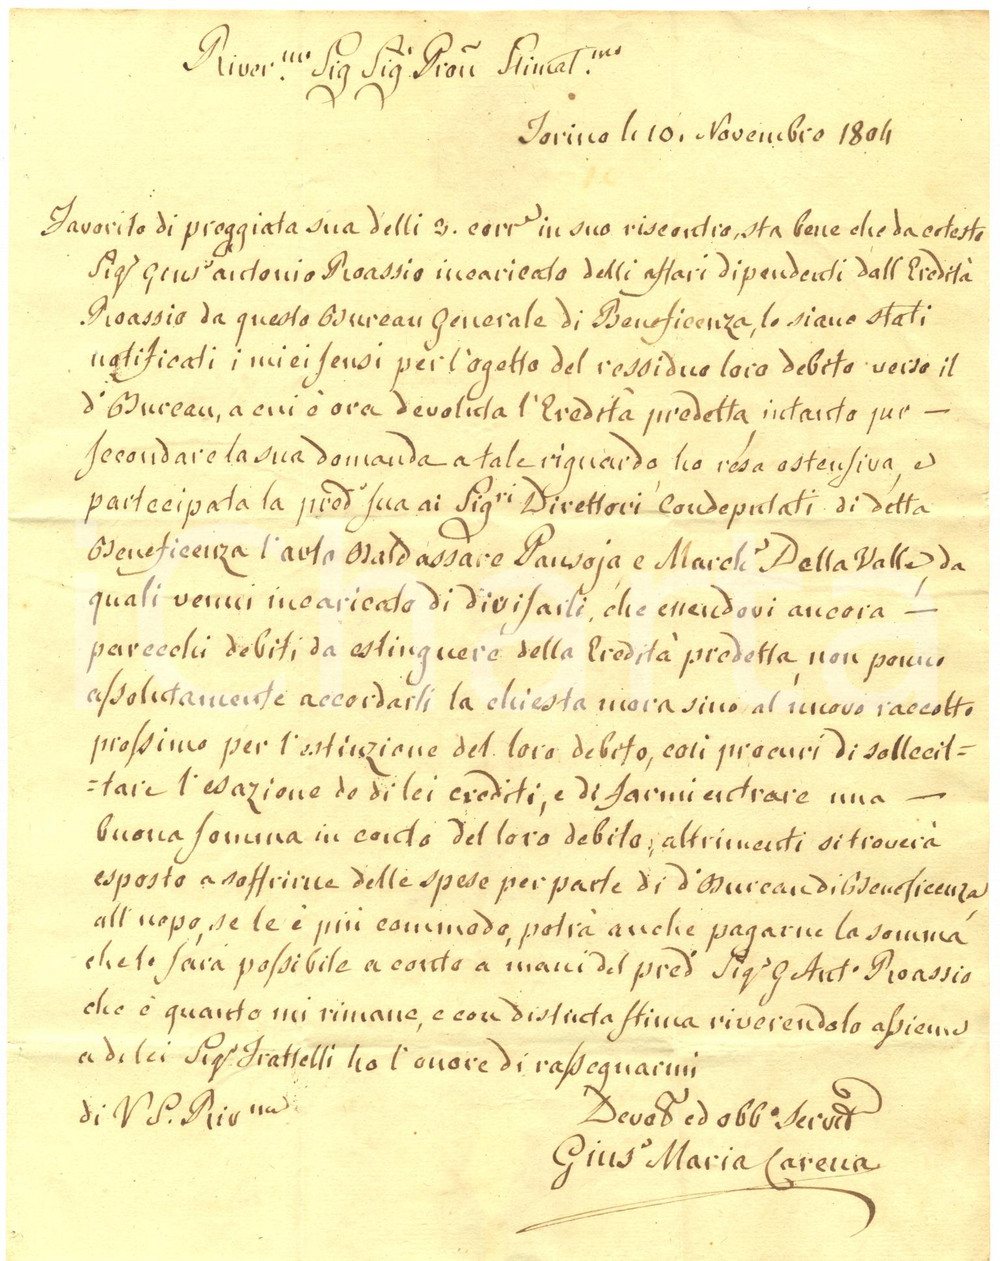 River.mo Sig Sig.r Pron̄ Stimat.mo
Torino li 10. Novembre 1804
Favorito di preggiata sua delli 3. corr.e in suo riscontro, sta bene che da cotesto
Sig.r Gius.e antonio Roassio incaricato delli affari dipendenti dall'Eredità
Roassio da questo Bureau Generale di Beneficenza, le siano stati
notificati i miei sensi per l'ogetto del ressiduo loro debito verso il
d.o Bureau, a cui è ora devoluta l'Eredità predetta, intanto per —
secondare la sua domanda a tale riguardo, ho resa ostensiva, e
partecipata la pred.a sua ai Sig.ri Direttori Condeputati di detta
Beneficenza l'avto Baldassare Pansoja, e March.e Della Valle, da
quali venni incaricato di divisarli, che essendovi ancora —
parecchi debiti da estinguere della Eredità predetta, non ponno
assolutamente accordarli la chiesta mora sino al nuovo raccolto
prossimo per l'estinzione del loro debito, così procuri di sollecit=
=tare l'esazione de di lei crediti, e di farmi entrare una —
buona somma in conto del loro debito, altrimenti si troverà
esposto a soffrirne delle spese per parte di d.o Bureau di Beneficenza
all'uopo, se le è più commodo, potrà anche pagarne la somma
che le sarà possibile a conto a mani del pred.o Sig.r G Ant.o Roassio
che è quanto mi rimane, e con distinta stima riverendolo assieme
a de lei Sig.ri Frattelli ho l'onore di rassegnarmi
di V. S. Riv.ma
Devot.o ed obb.o Servit.e
Gius.e Maria Carena